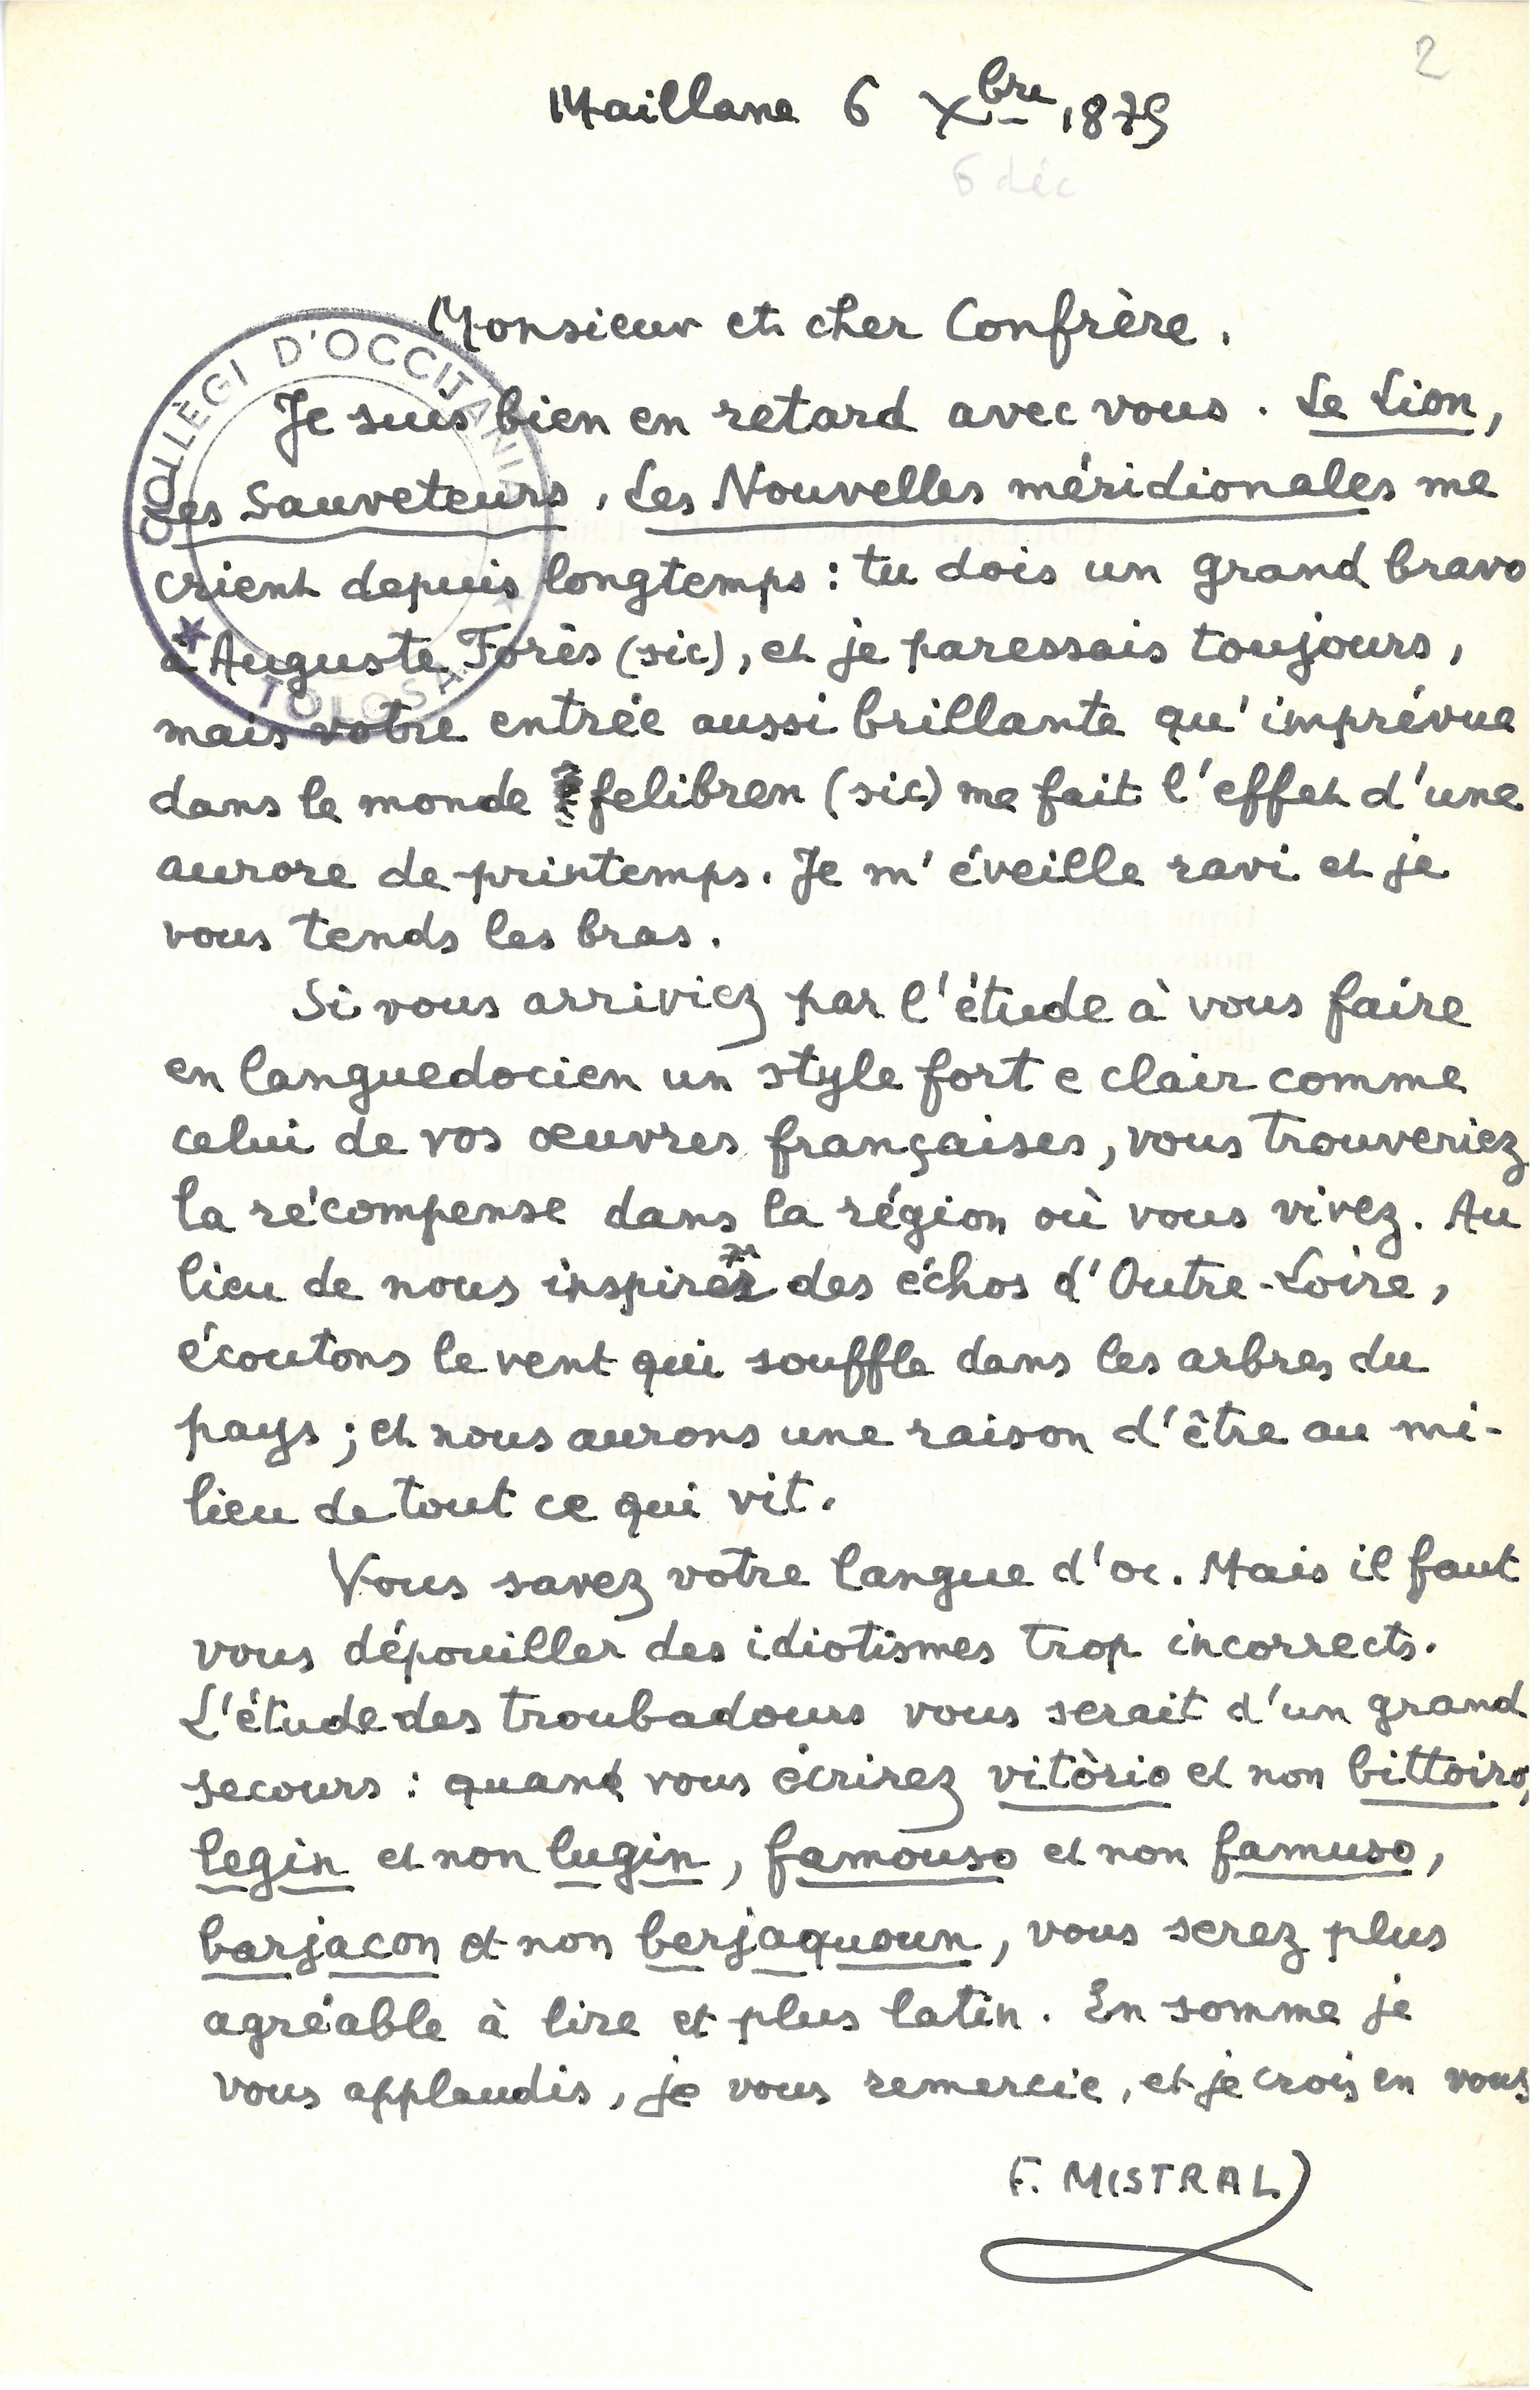 2
Maillane 6 Xbre 1879
6 déc
Monsieur et cher Confrère,
COLLÈGI D'OCCITANIA
TOLOSA
Je suis bien en retard avec vous. Le Lion,
Les Sauveteurs, Les Nouvelles méridionales me
crient depuis longtemps : tu dois un grand bravo
à Auguste Forès (sic), et je paressais toujours,
mais votre entrée aussi brillante qu'imprévue
dans le monde felibren (sic) me fait l'effet d'une
aurore de printemps. Je m'éveille ravi et je
vous tends les bras.
Si vous arriviez par l'étude à vous faire
en languedocien un style fort e clair comme
celui de vos œuvres françaises, vous trouveriez
la récompense dans la région où vous vivez. Au
lieu de nous inspirer des échos d'Outre-Loire,
écoutons le vent qui souffle dans les arbres du
pays ; et nous aurons une raison d'être au mi-
lieu de tout ce qui vit.
Vous savez votre langue d'oc. Mais il faut
vous dépouiller des idiotismes trop incorrects.
L'étude des troubadours vous serait d'un grand
secours : quand vous écrirez vitòrio et non bittoiro,
legin et non lugin, famouso et non famuso,
barjacon et non berjaquoun, vous serez plus
agréable à lire et plus latin. En somme je
vous applaudis, je vous remercie, et je crois en vous
F. MISTRAL